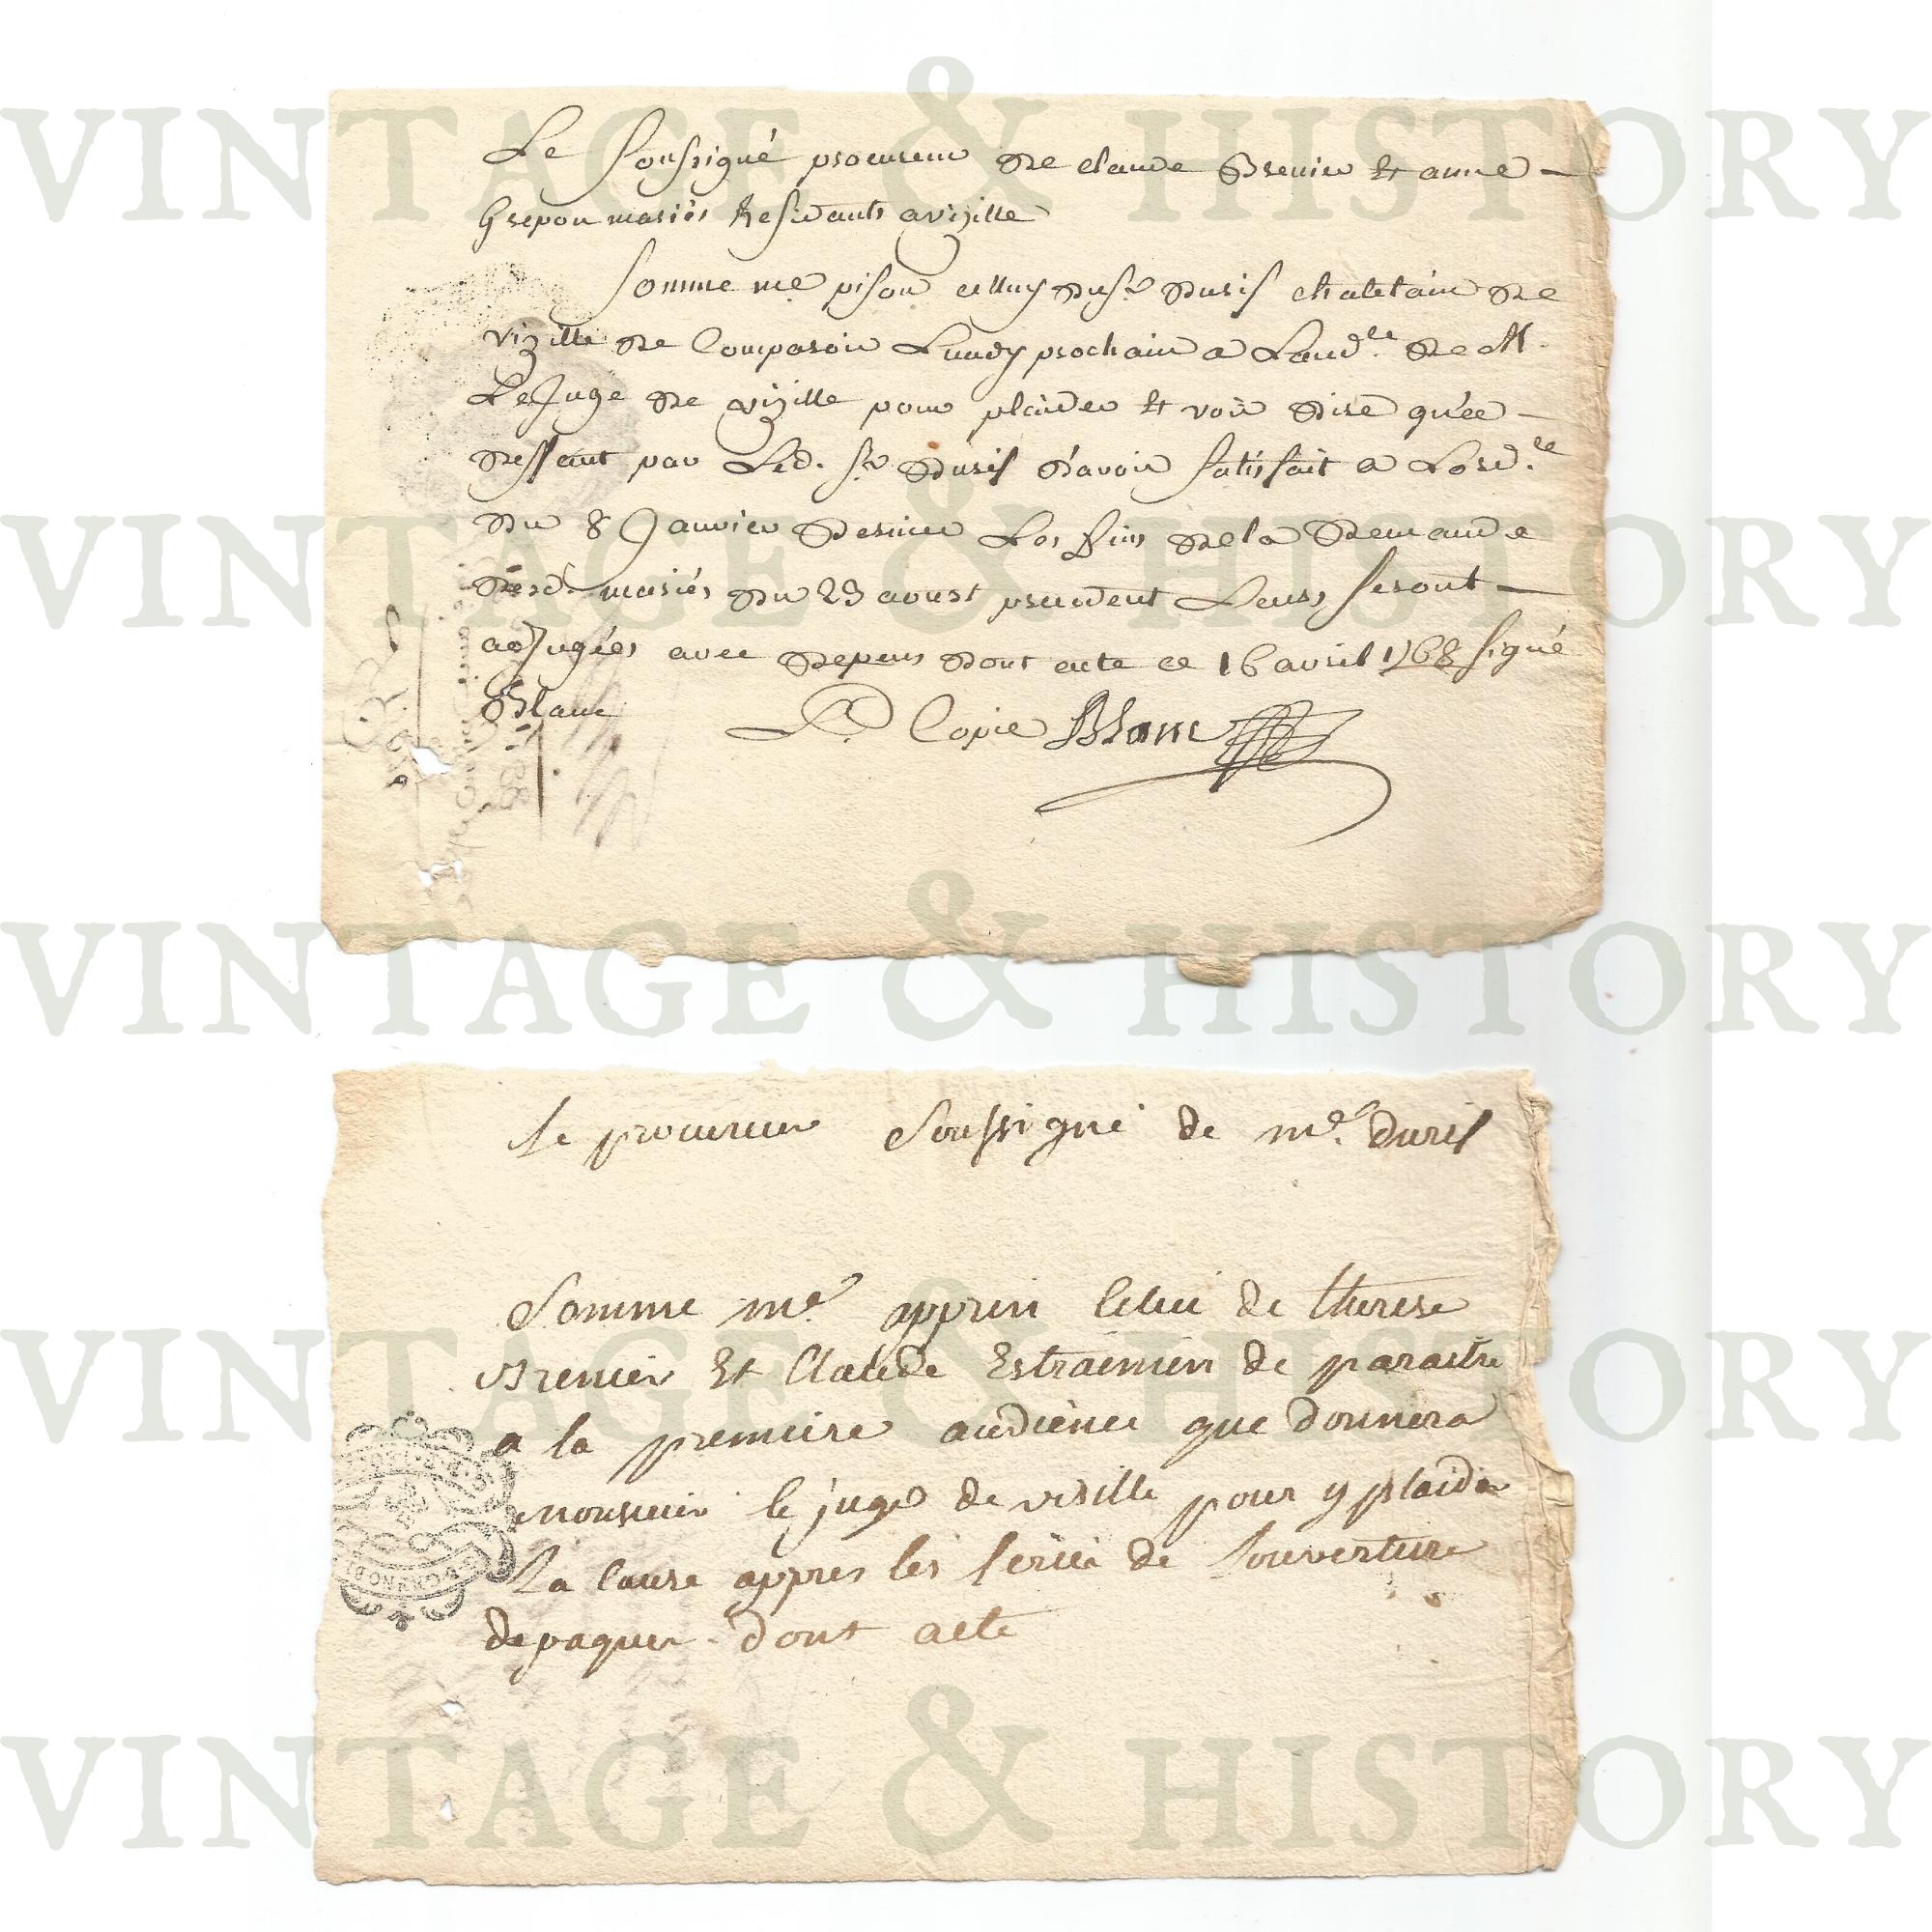 VINTAGE & HISTORY
Le soussigné procureur de claude Brenier et anne
Grepon mariés Residants a vizille
Somme me pison celluy du sr Duris chatelain de
vizille de Comparoir Lundy prochain a Laud.ce de M.
Le Juge de vizille pour plaider et voir dire qu'ee
deffaut par Led. sr Duris d'avoir satisfait a Lord.ce
du 8 Janvier dernier Les fins de la demande
desd. mariés du 23 aoust precedent Leurs seront
adjugées avec depens dont acte ce 16 avril 1768 signé
Blanc
Pr. Copie Blanc
Le procureur Soussigné de me. duris
Somme me. apprin Celui de therese
Brenier Et Claude Estraimien de paraitre
a la premeire audience que donnera
monsieur le juge de visille pour y plaider
La Cause appres les feries de Louverture
de paques dont acte
VINTAGE & HISTORY
VINTAGE & HISTORY
VINTAGE & HISTORY
VINTAGE & HISTORY